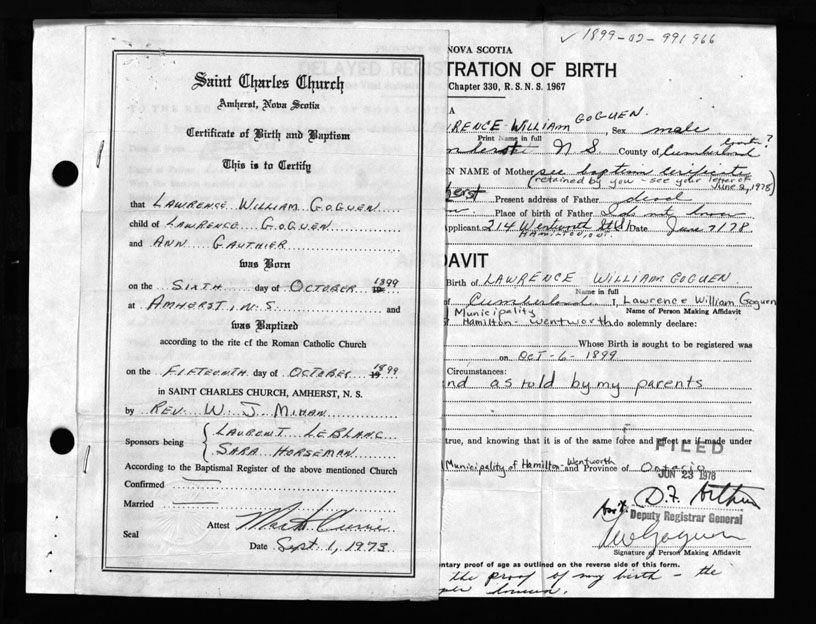 Saint Charles Church
Amherst, Nova Scotia
Certificate of Birth and Baptism
This is to Certify
that LAWRENCE WILLIAM GOGUEN
child of LAWRENCE GOGUEN
and ANN GAUTHIER
was Born
on the SIXTH day of OCTOBER 1899
at AMHERST, N.S. and
was Baptized
according to the rite of the Roman Catholic Church
on the FIFTEENTH day of OCTOBER 1899
in SAINT CHARLES CHURCH, AMHERST, N. S.
by REV. W. J. MIHAN
Sponsors being LAURENT LEBLANC
SARA HORSEMAN
According to the Baptismal Register of the above mentioned Church
Confirmed
Married
Attest
Seal
Date Sept. 1, 1973
✓ 1899-02-991966
NOVA SCOTIA
TRATION OF BIRTH
Chapter 330, R.S.N.S. 1967
A
RENCE WILLIAM GOGUEN. Sex male
Print Name in full
N S County of Cumberland
N NAME of Mother see baptism certificate
(retained by you - see your letter of June 2, 1978)
Present address of Father dead
Place of birth of Father do not know
pplicant 214 Wentworth St N Date June 7/78
HAMILTON, ONT.
DAVIT
Birth of LAWRENCE WILLIAM GOGUEN
Name in full
of Cumberland I, Lawrence William Goguen
Municipality Name of Person Making Affidavit
f Hamilton-Wentworth do solemnly declare:
Whose Birth is sought to be registered was
on OCT-6-1899
Circumstances:
nd as told by my parents
true, and knowing that it is of the same force and effect as if made under
FILED
Municipality of Hamilton-Wentworth and Province of Ontario
JUN 23 1978
Deputy Registrar General
Signature of Person Making Affidavit
ntary proof of age as outlined on the reverse side of this form.
the proof of my birth - the